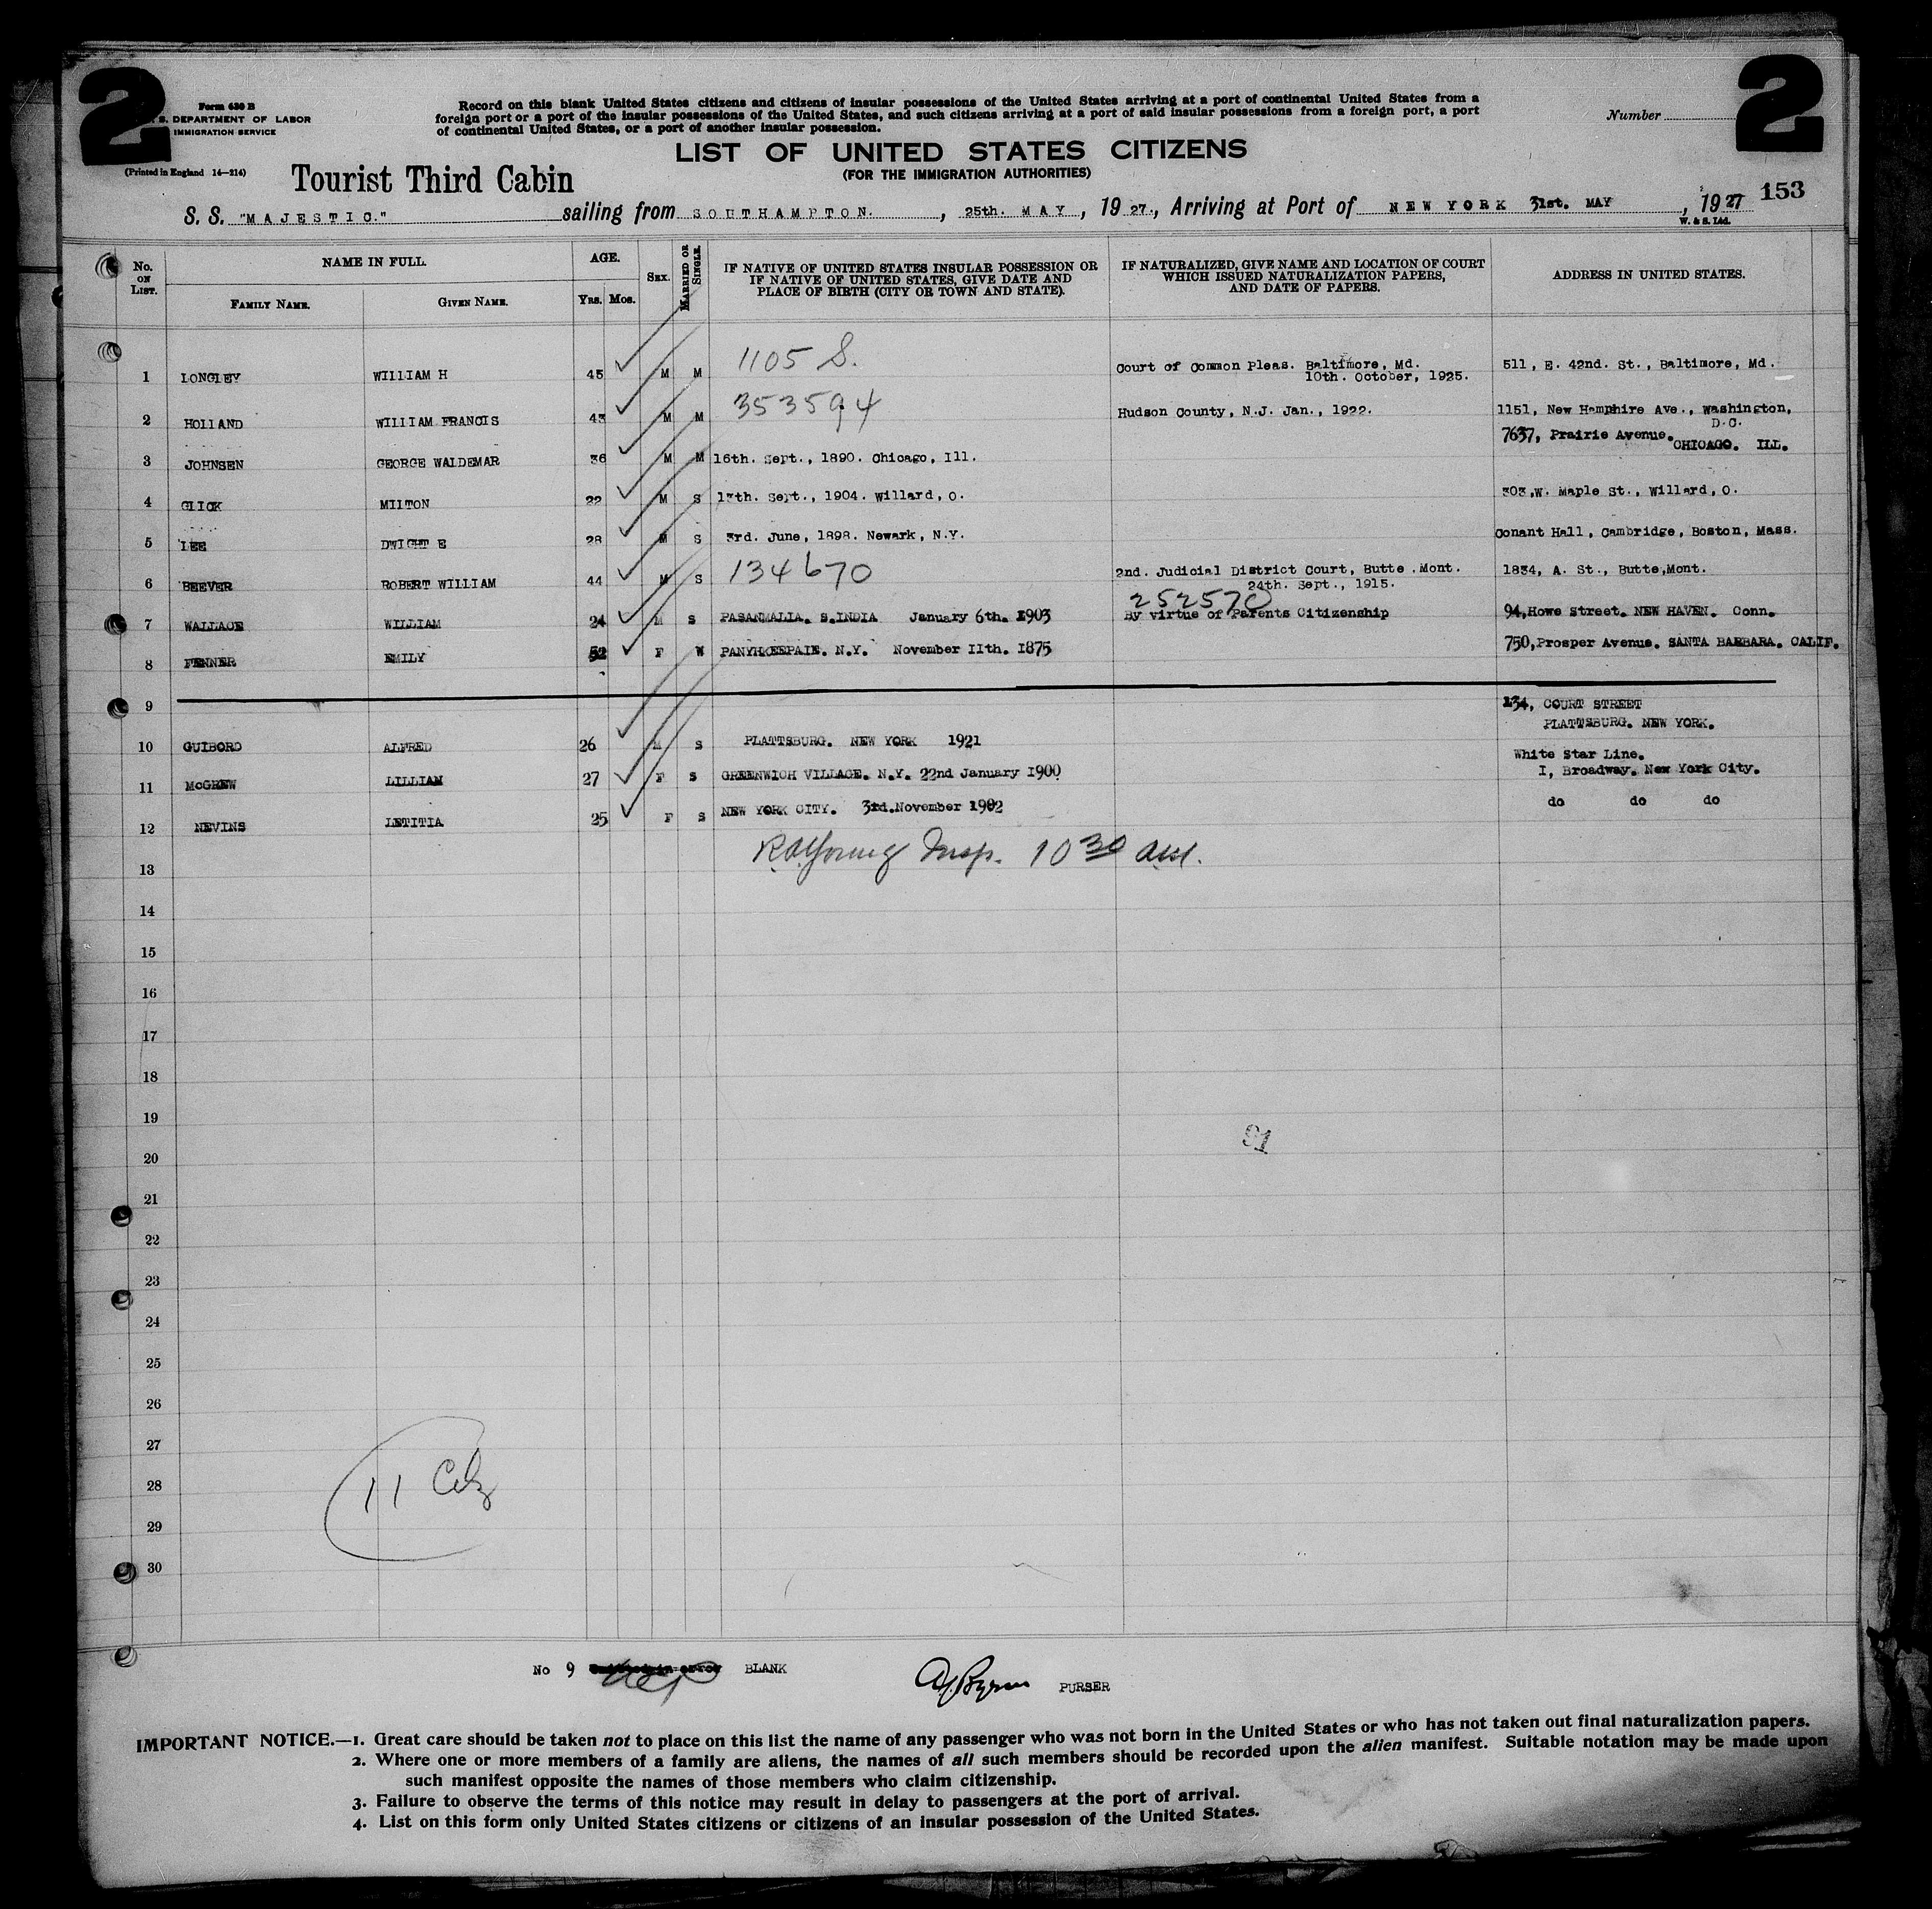 2
2
Form 630 B
U.S. DEPARTMENT OF LABOR
IMMIGRATION SERVICE
(Printed in England 14—214)
Record on this blank United States citizens and citizens of insular possessions of the United States arriving at a port of continental United States from a
foreign port or a port of the insular possessions of the United States, and such citizens arriving at a port of said insular possessions from a foreign port, a port
of continental United States, or a port of another insular possession.
Number
LIST OF UNITED STATES CITIZENS
(FOR THE IMMIGRATION AUTHORITIES)
Tourist Third Cabin
153
S. S. "MAJESTIC." sailing from SOUTHAMPTON. , 25th. MAY , 19 27., Arriving at Port of NEW YORK 31st. MAY , 1927
W. & S. Ltd.
No. ON LIST. NAME IN FULL. AGE. SEX. MARRIED OR SINGLE. IF NATIVE OF UNITED STATES INSULAR POSSESSION OR IF NATIVE OF UNITED STATES, GIVE DATE AND PLACE OF BIRTH (CITY OR TOWN AND STATE). IF NATURALIZED, GIVE NAME AND LOCATION OF COURT WHICH ISSUED NATURALIZATION PAPERS, AND DATE OF PAPERS. ADDRESS IN UNITED STATES.
FAMILY NAME. GIVEN NAME. Yrs. Mos.
1 LONGLEY WILLIAM H 45 M M 1105 S. Court of Common Pleas. Baltimore, Md. 10th. October, 1925. 511, E. 42nd. St., Baltimore, Md.
2 HOLLAND WILLIAM FRANCIS 43 M M 353594 Hudson County, N.J. Jan., 1922. 1151, New Hamphire Ave., Washington, D.C.
3 JOHNSEN GEORGE WALDEMAR 36 M M 16th. Sept., 1890. Chicago, Ill. 7637, Prairie Avenue. CHICAGO. ILL.
4 GLICK MILTON 22 M S 13th. Sept., 1904. Willard, O. 303,W. Maple St., Willard, O.
5 LEE DWIGHT E 28 M S 3rd. June, 1898. Newark, N.Y. Conant Hall, Cambridge, Boston, Mass.
6 BEEVER ROBERT WILLIAM 44 M S 134670 2nd. Judicial District Court, Butte .Mont. 24th. Sept., 1915. 1834, A. St., Butte,Mont.
252570
7 WALLACE WILLIAM 24 M S PASANMALIA. S.INDIA January 6th. 1903 By virtue of Parents Citizenship 94,Howe Street. NEW HAVEN. Conn.
8 FENNER EMILY 52 F W PANYHKEEPAIE. N.Y. November 11th. 1875 750,Prosper Avenue. SANTA BARBARA. CALIF.
9
10 GUIBORD ALFRED 26 M S PLATTSBURG. NEW YORK 1921 134, COURT STREET PLATTSBURG. NEW YORK.
11 McGREW LILLIAM 27 F S GREENWICH VILLAGE. N.Y. 22nd January 1900 White Star Line. 1, Broadway. New York City.
12 NEVINS LETITIA 25 F S NEW YORK CITY. 3rd.November 1902 do do do
13 Insp. 10 30 am.
14
15
16
17
18
19
91
20
21
22
23
24
25
26
27
28 11 Citz
29
30
No 9 BLANK
PURSER
IMPORTANT NOTICE.—1. Great care should be taken not to place on this list the name of any passenger who was not born in the United States or who has not taken out final naturalization papers.
2. Where one or more members of a family are aliens, the names of all such members should be recorded upon the alien manifest. Suitable notation may be made upon
such manifest opposite the names of those members who claim citizenship.
3. Failure to observe the terms of this notice may result in delay to passengers at the port of arrival.
4. List on this form only United States citizens or citizens of an insular possession of the United States.